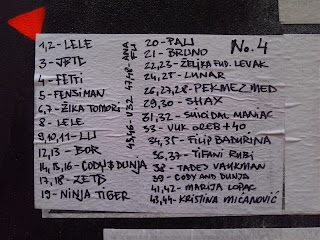 1,2 - LELE
3 - JPTE
4 - FETTI
5 - FENSIMAN
6,7 - ŽIKA TOMORI
8 - LELE
9,10,11 - LLI
12,13 - BOR
14,15,16 - CODY & DUNJA
17,18 - ZETD
19 - NINJA TIGER
45,46 - V32
47,48 - ANA
20 - PALI
21 - BRUNO
22,23 - ŽELJKA FUD. LEVAK
24,25 - LUNAR
26,27,28 - PEKMEZMED
29,30 - SHAX
31,32 - SUICIDAL MANIAC
33 - VUK OREB +40
34,35 - FILIP BADURINA
36,37 - TIFANI RUBI
38 - TADEJ VAUKMAN
39 - CODY AND DUNJA
41,42 - MARIJA LOPAC
43,44 - KRISTINA MICANOVIĆ
No. 4